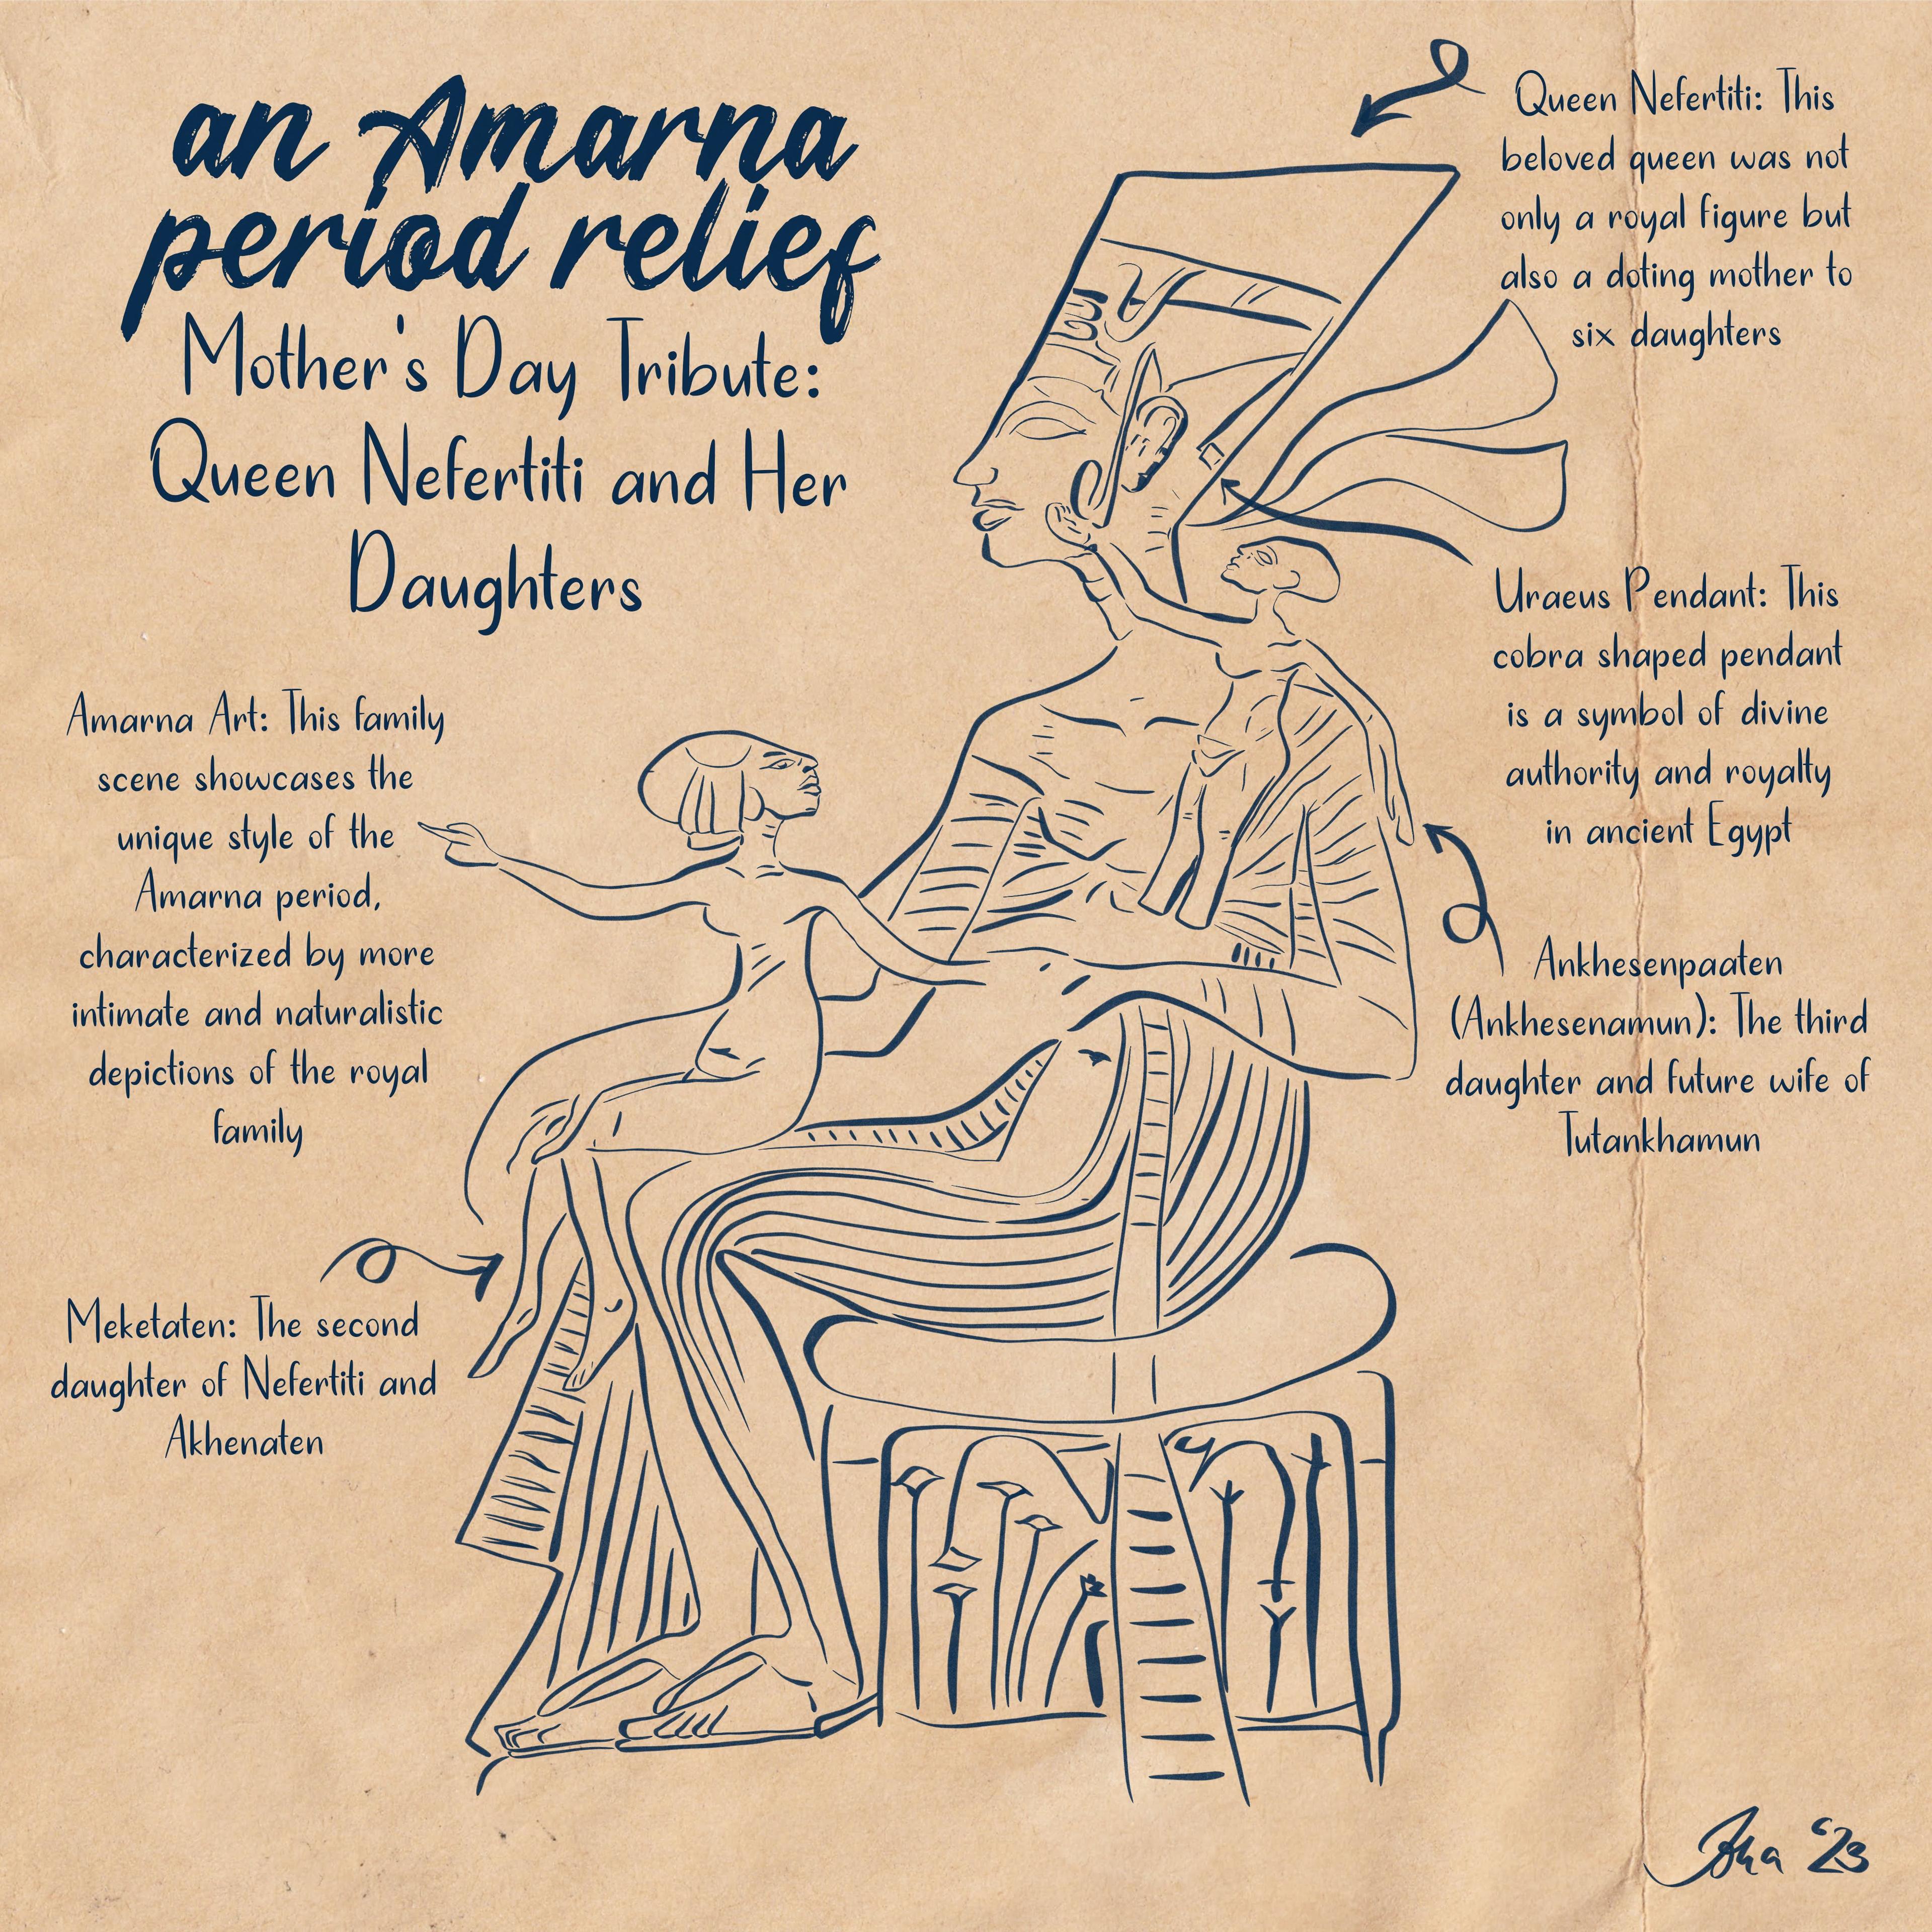 an Amarna
period relief
Mother's Day Tribute:
Queen Nefertiti and Her
Daughters
Queen Nefertiti: This
beloved queen was not
only a royal figure but
also a doting mother to
six daughters
Uraeus Pendant: This
cobra shaped pendant
is a symbol of divine
authority and royalty
in ancient Egypt
Amarna Art: This family
scene showcases the
unique style of the
Amarna period,
characterized by more
intimate and naturalistic
depictions of the royal
family
Ankhesenpaaten
(Ankhesenamun): The third
daughter and future wife of
Tutankhamun
Meketaten: The second
daughter of Nefertiti and
Akhenaten
'23